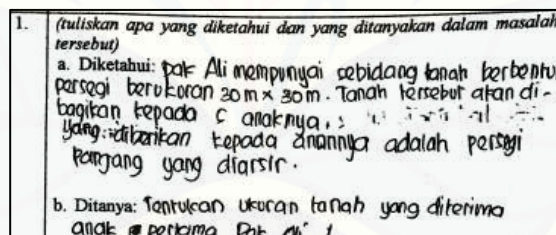 1. (tuliskan apa yang diketahui dan yang ditanyakan dalam masalah
tersebut)
a. Diketahui: pak Ali mempunyai sebidang tanah berbentu
persegi berukuran 30 m × 30 m. Tanah tersebut akan di-
bagikan kepada anaknya,
yang diberikan kepada anannya adalah persegi
Panjang yang diarsir.
b. Ditanya: Tentukan ukuran tanah yang diterima
anak pertama Pak